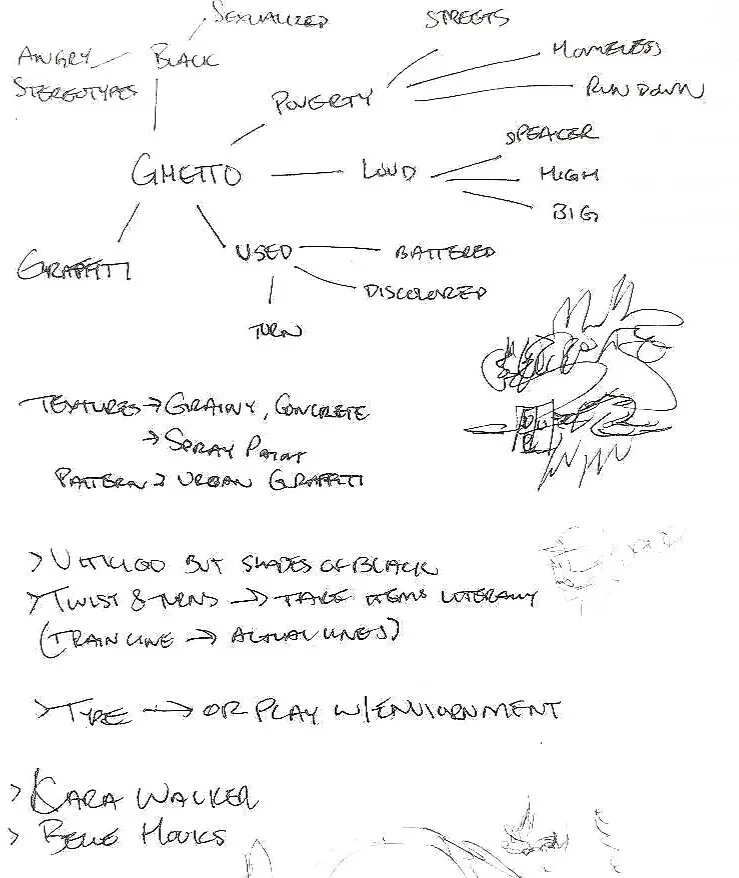 SEXUALIZED
STREETS
ANGRY
BLACK
HOMELESS
STEREOTYPES
POVERTY
RUN DOWN
SPEAKER
GHETTO
LOUD
HIGH
BIG
GRAFFITI
USED
BATTERED
DISCOLORED
TURN
TEXTURES → GRAINY, CONCRETE
→ SPRAY PAINT
PATTERN > URBAN GRAFFITI
> VITILIGO BUT SHADES OF BLACK
> TWIST & TURNS → TAKE ITEMS LITERALLY
(TRAIN LINE → ACTUAL LINES)
> TYPE → OR PLAY W/ENVIORNMENT
> KARA WALKER
> BELLE HOOKS